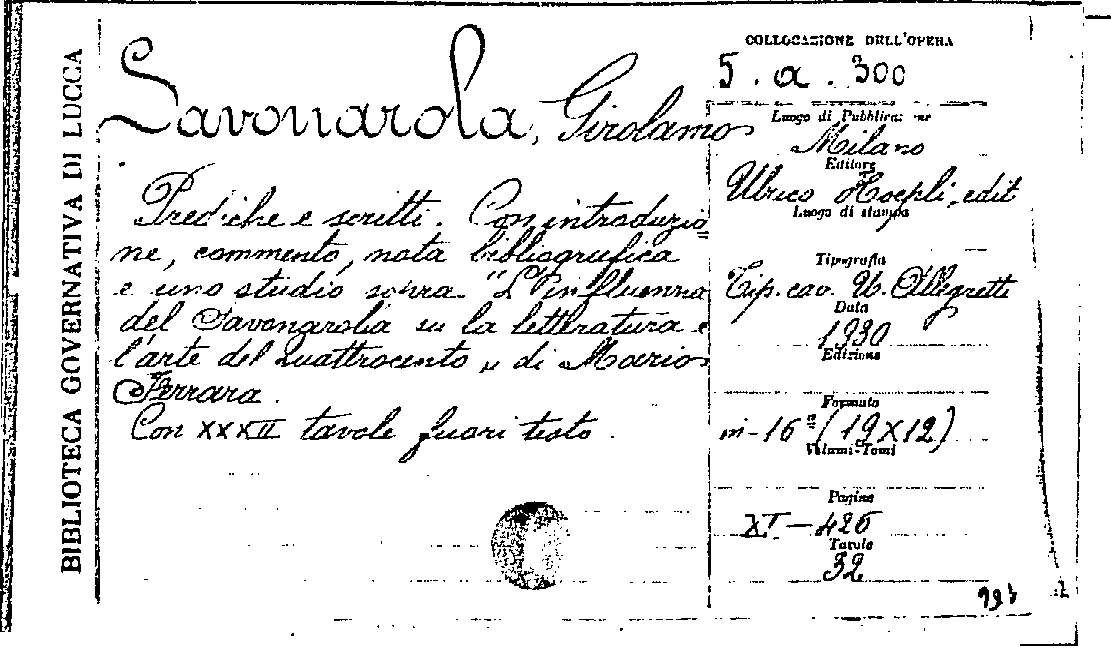 BIBLIOTECA GOVERNATIVA DI LUCCA
Savonarola, Girolamo
Prediche e scritti. Con introduzio=
ne, commento, nota bibliografica
e uno studio sovra "L'influenna
del Savonarolia su la letteratura e
l'arte del Quattrocento „ di Mario
Ferrara.
Con XXXII tavole fuori testo.
COLLOCAZIONE DELL'OPERA
5. a. 300
Luogo di Pubblicazione
Milano
Editore
Ulrico Hoepli, edit
Luogo di stampa
Tipografia
Tip. cav. U. Allegretti
Data
1930
Edizione
Formato
in-16º (19X12)
Volumi-Tomi
Pagine
XI-426
Tavole
32